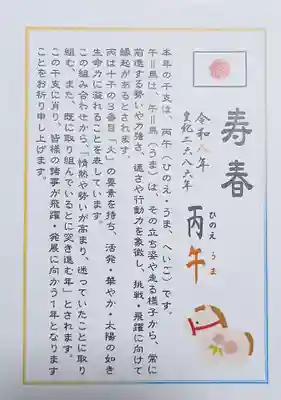 寿春
令和八年
皇紀二六八六年
ひのえ うま
丙午
本年の干支は、丙午(ひのえ・うま、へいご)です。
午=馬は、午=馬(うま)は、その立ち姿や走る様子から、常に
前進する勢いや力強さ、速さや行動力を象徴し、挑戦・飛躍に向けて
縁起があるとされます。
丙は十干の3番目「火」の要素を持ち、活発・華やか・太陽の如き
生命力に溢れることを表しています。
この組み合わせから、「情熱や勢いが高まり、迷っていたことに取り
組む、また、既に取り組んでいるとに突き進む年」とされます。
この干支に肖り、皆様の諸事が飛躍・発展に向かう1年となります
ことをお祈り申し上げます。